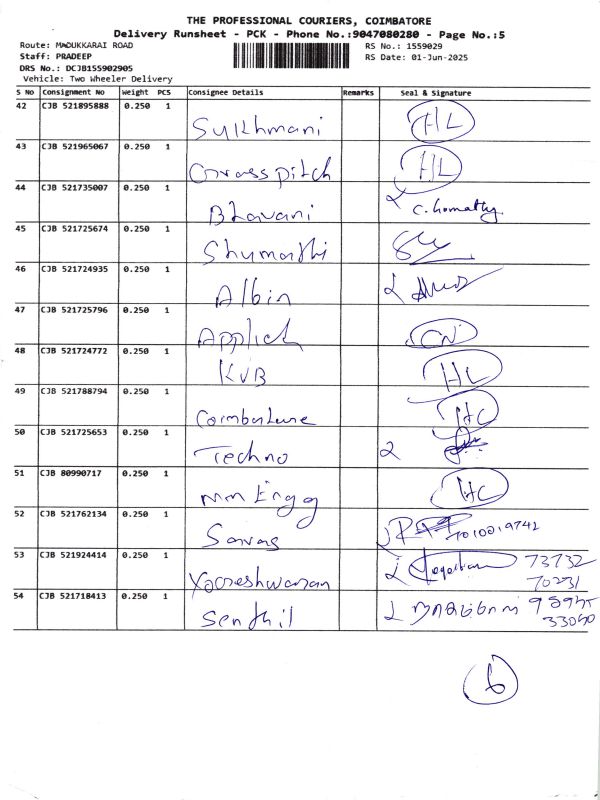 THE PROFESSIONAL COURIERS, COIMBATORE
Delivery Runsheet - PCK - Phone No.:9047080280 - Page No.:5
Route: MADUKKARAI ROAD RS No.: 1559029
Staff: PRADEEP RS Date: 01-Jun-2025
DRS No.: DCJB155902905
Vehicle: Two Wheeler Delivery
S No Consignment No Weight PCS Consignee Details Remarks Seal & Signature
42 CJB 521895888 0.250 1 Sukhmani HL
43 CJB 521965067 0.250 1 Grasspitch HL
44 CJB 521735007 0.250 1 Bhavani C. Gomathy
45 CJB 521725674 0.250 1 Shymathi
46 CJB 521724935 0.250 1 Albin
47 CJB 521725796 0.250 1 Applich
48 CJB 521724772 0.250 1 KVB HL
49 CJB 521788794 0.250 1 Coimbatore HC
50 CJB 521725653 0.250 1 Techno
51 CJB 80990717 0.250 1 mm Engg HC
52 CJB 521762134 0.250 1 Savas 7010019742
53 CJB 521924414 0.250 1 Yogeshwaran 73732
70231
54 CJB 521718413 0.250 1 Senthil
33050
6